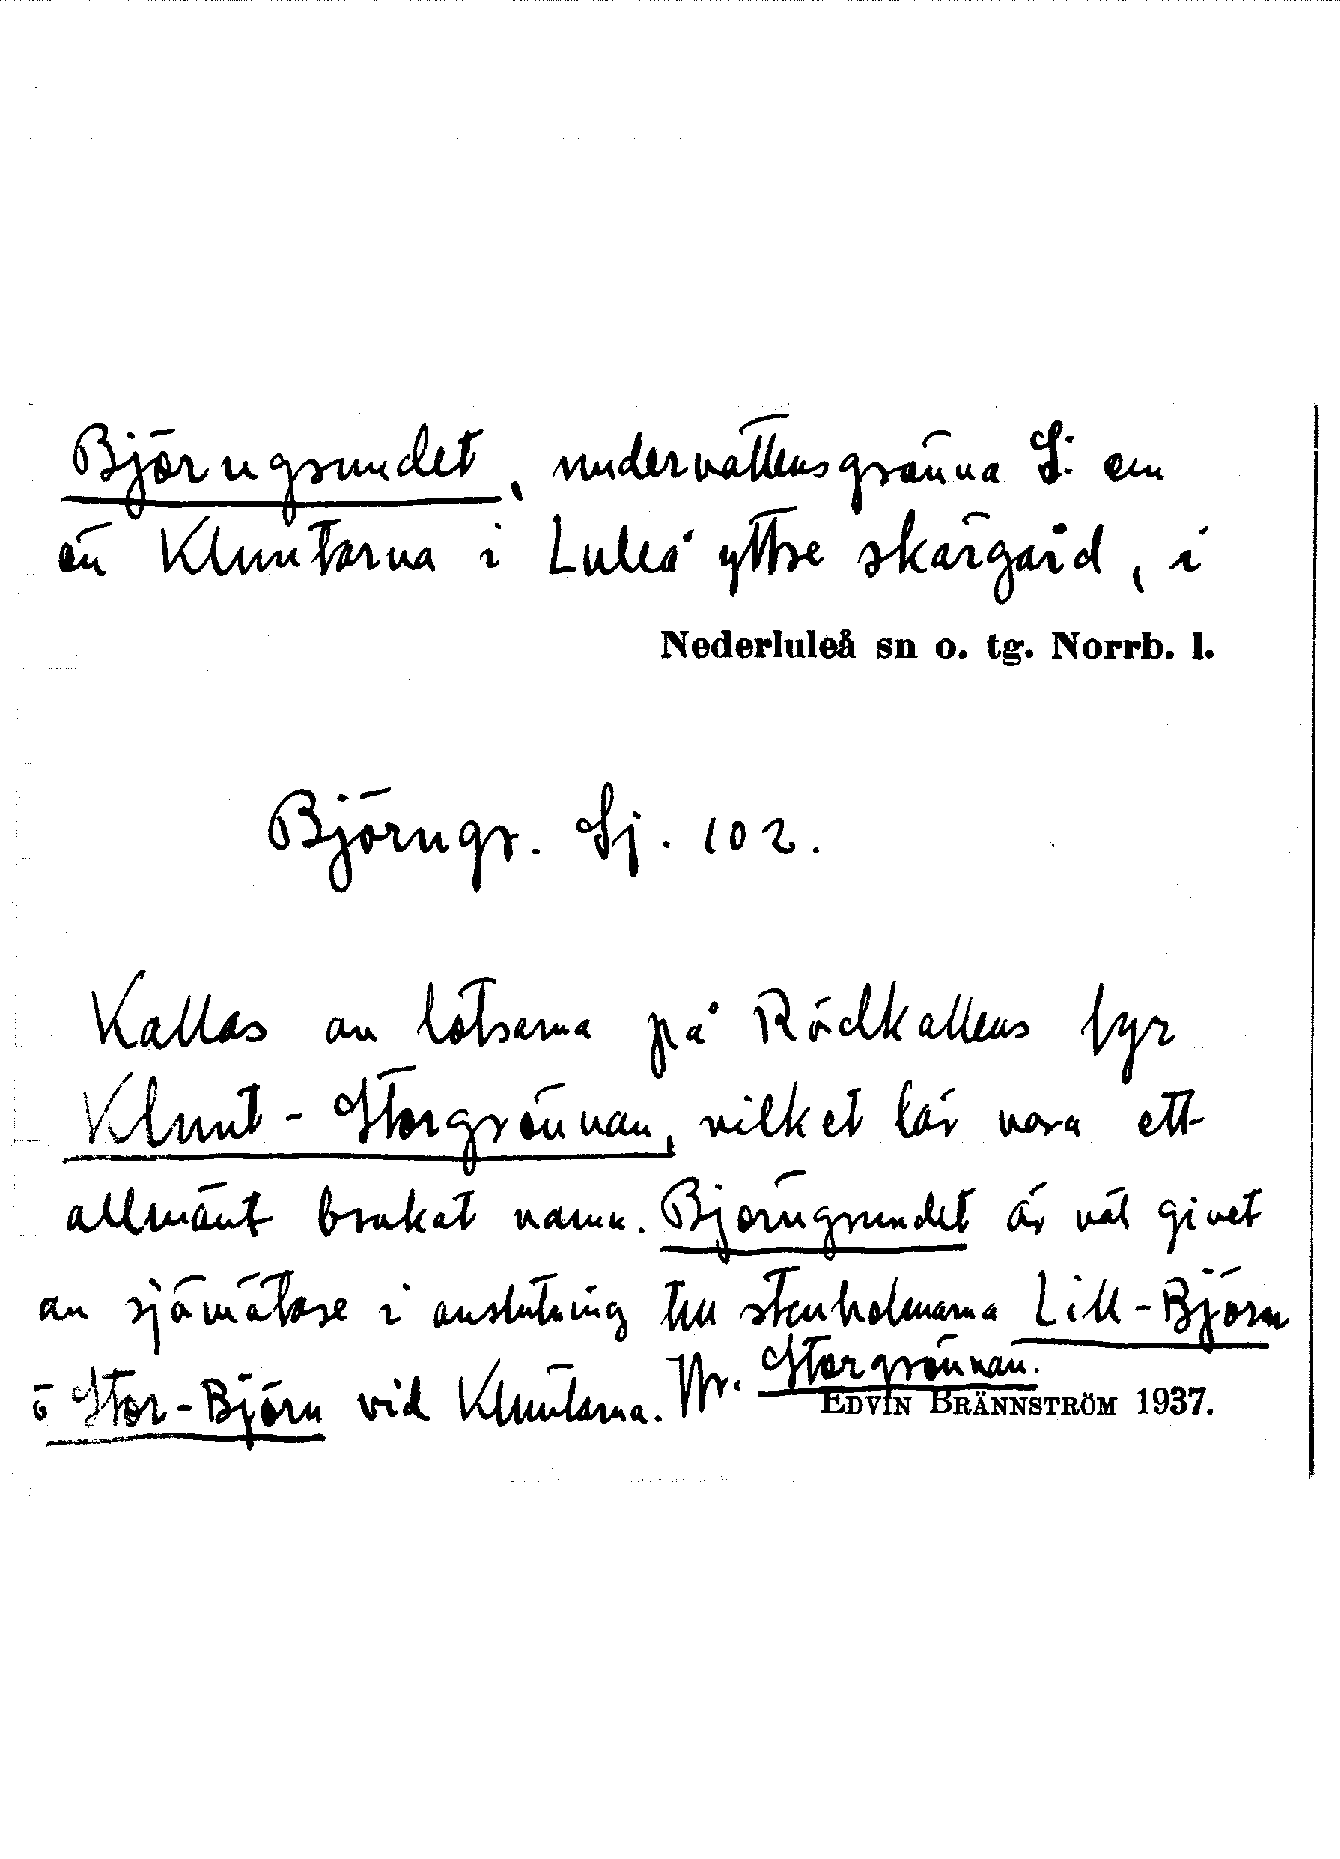 Björngrundet, undervattensgrönna S. om
ön Kluntarna i Luleå yttre skärgård, i
Nederluleå sn o. tg. Norrb. l.
Björngr. Sj. 102.
Kallas av lotsarna på Rödkallens fyr
Klunt-Storgrönnan, vilket lär vara ett
allmänt brukat namn. Björngrundet är väl givet
av sjömätare i anslutning till stenholmarna Lill-Björn
o Stor-Björn vid Kluntarna. Storgrönnan.
EDVIN BRÄNNSTRÖM 1937.